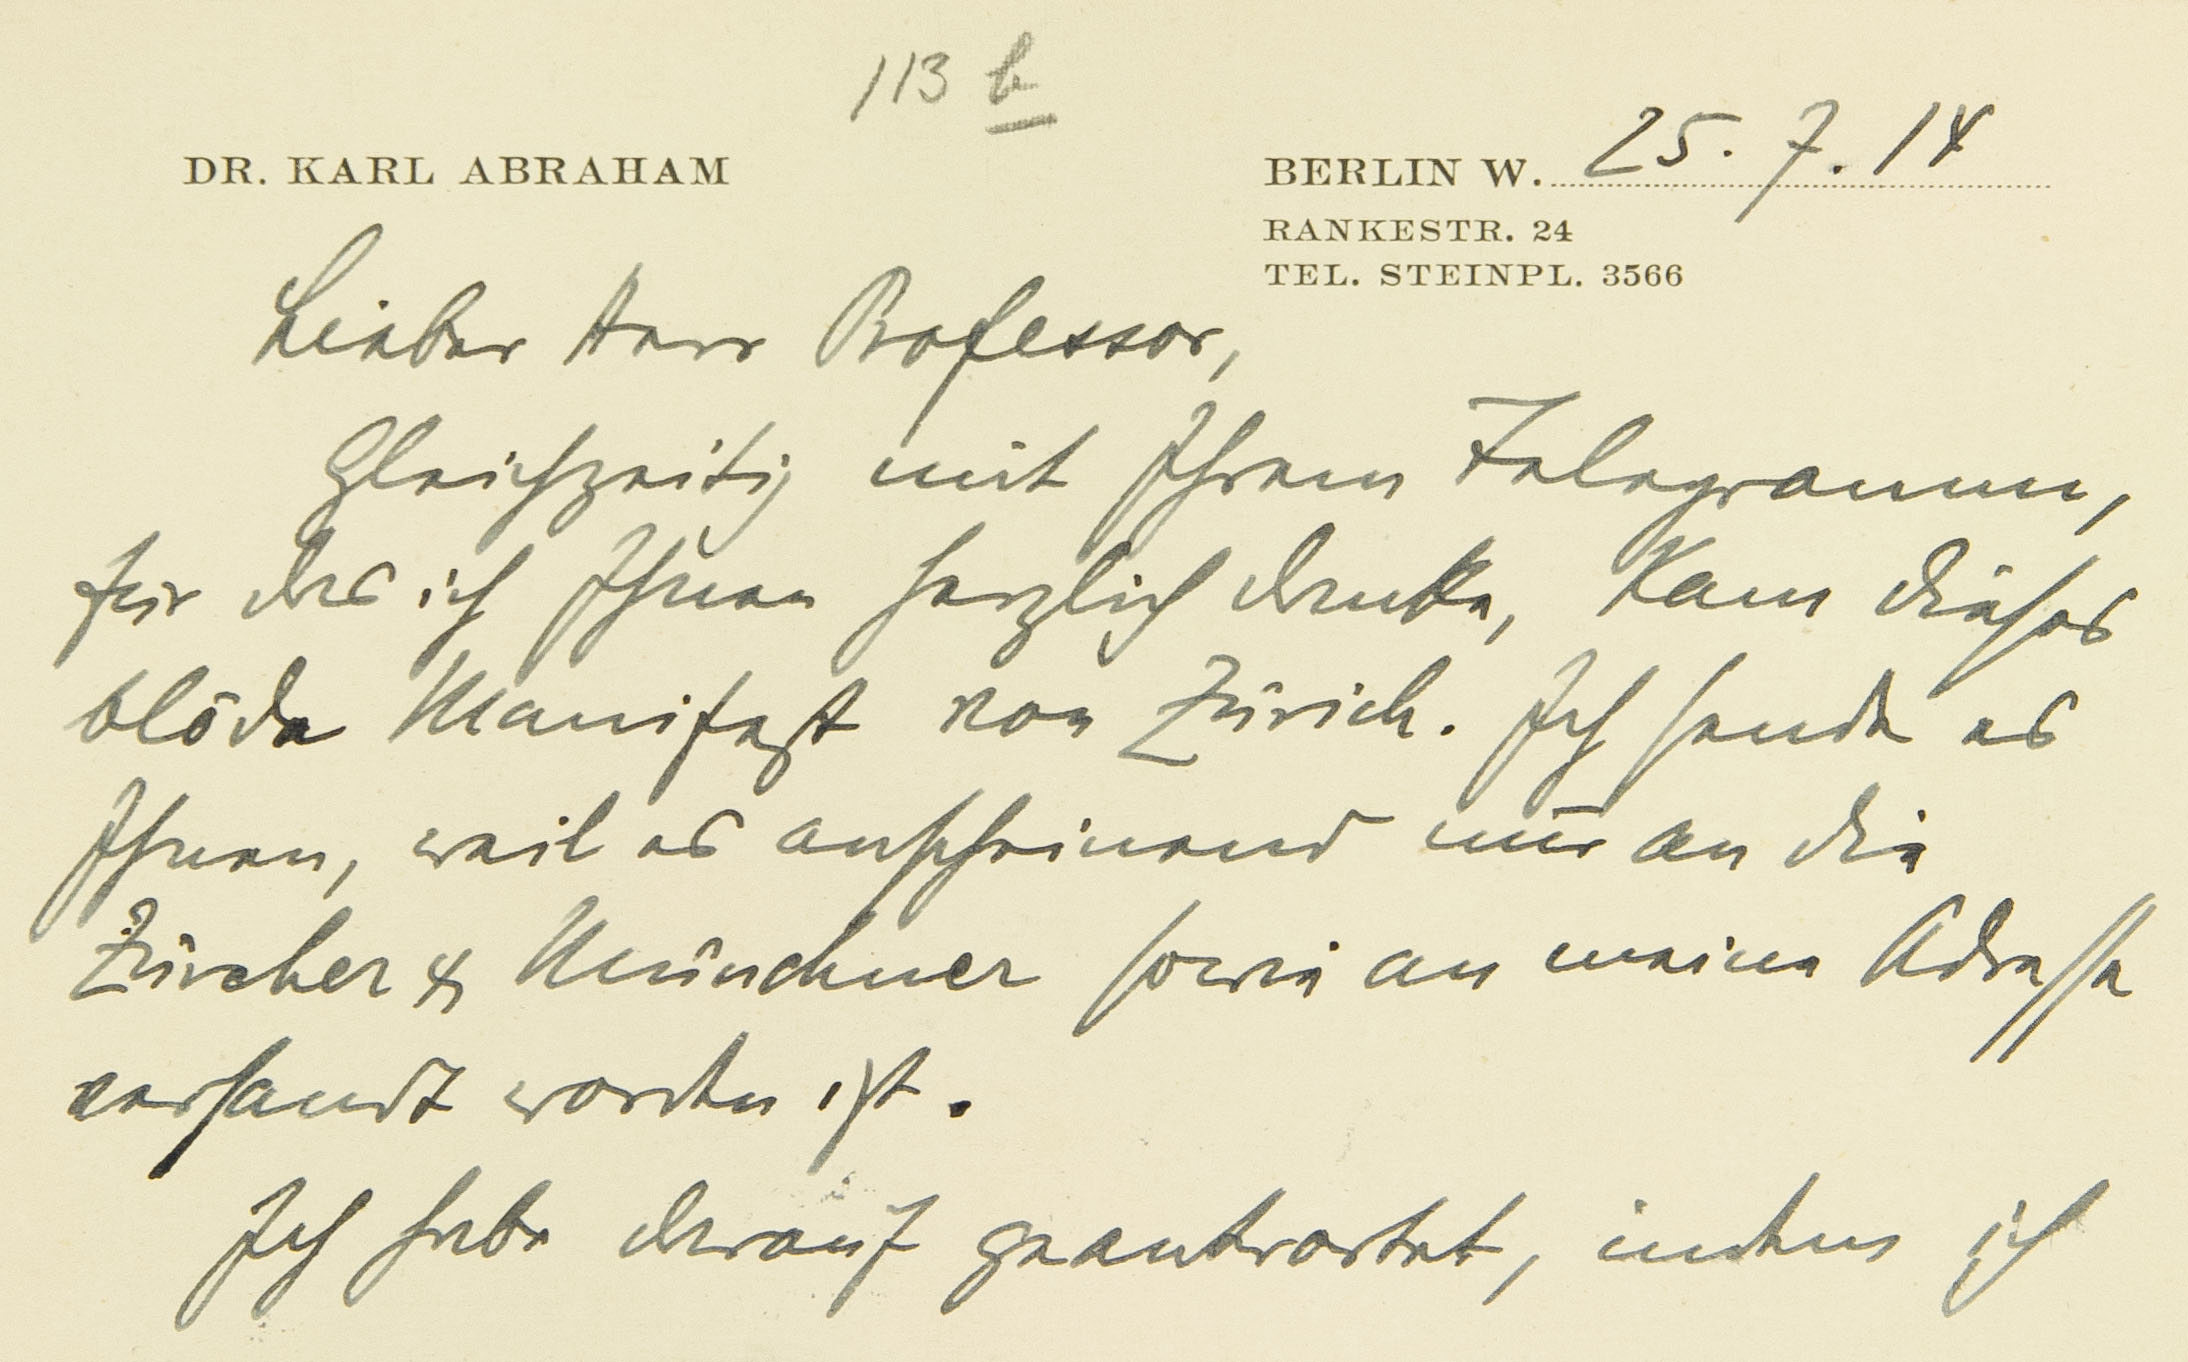 113 b
DR. KARL ABRAHAM
BERLIN W. 25. 7. 14
RANKESTR. 24
TEL. STEINPL. 3566
Lieber Herr Professor,
Gleichzeitig mit Ihrem Telegramm,
für das ich Ihnen herzlich danke, kam dieses
blöde Manifest von Zürich. Ich sende es
Ihnen, weil es anscheinend nur an die
Zürcher & Münchner sowie an meine Adresse
versandt worden ist.
Ich habe darauf geantwortet, indem ich